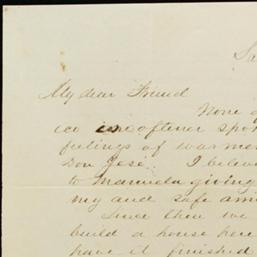 Sa
My dear Friend
None o
ico is oftener spo
feelings of warme
Don José. I believ
to Manuela giving
my and safe arri
Since then we
build a house here
have it finished